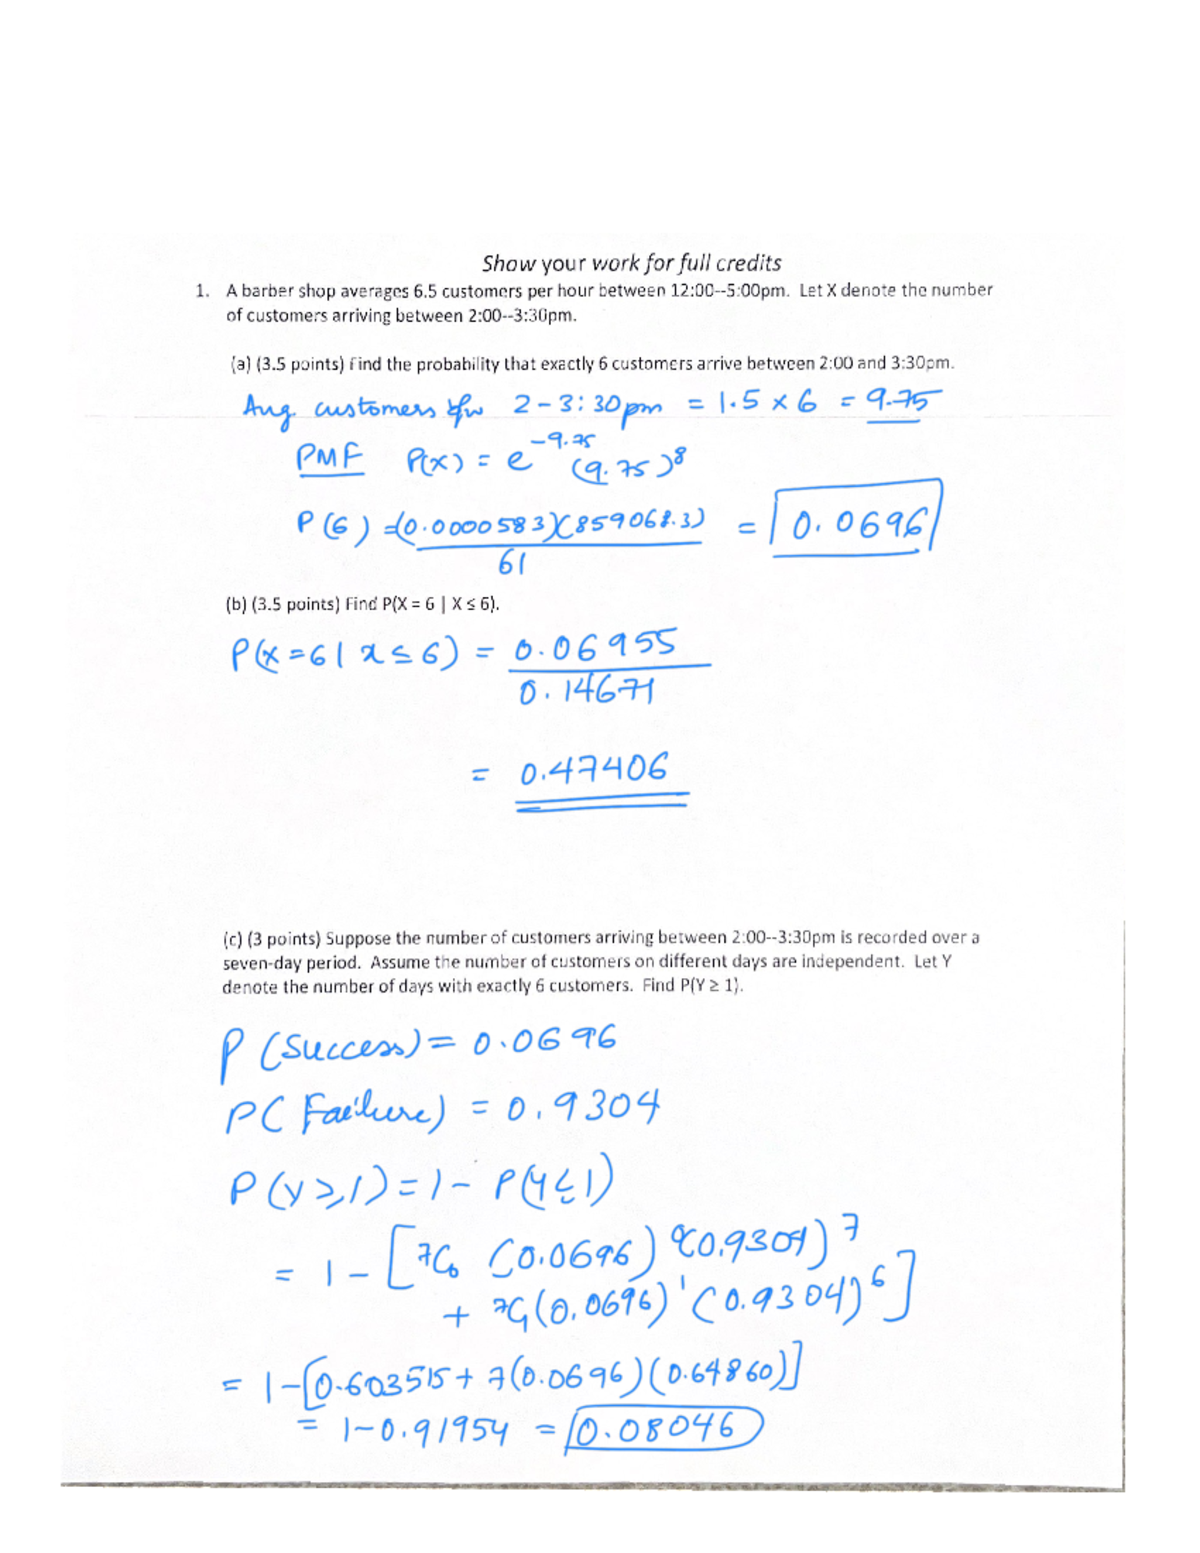 Show your work for full credits
1. A barber shop averages 6.5 customers per hour between 12:00--5:00pm. Let X denote the number
of customers arriving between 2:00--3:30pm.
(a) (3.5 points) Find the probability that exactly 6 customers arrive between 2:00 and 3:30pm.
Avg. customers b/w 2-3:30pm = 1.5 × 6 = 9.75
PMF P(x) = e^-9.75 (9.75)^8
P(6) = (0.0000583)(859068.3) = 0.0696
6!
(b) (3.5 points) Find P(X = 6 | X ≤ 6).
P(x=6 | x ≤ 6) = 0.06955
0.14671
= 0.47406
(c) (3 points) Suppose the number of customers arriving between 2:00--3:30pm is recorded over a
seven-day period. Assume the number of customers on different days are independent. Let Y
denote the number of days with exactly 6 customers. Find P(Y ≥ 1).
P(Success) = 0.0696
P(Failure) = 0.9304
P(Y ≥ 1) = 1 - P(Y ≤ 1)
= 1 - [7C0 (0.0696)^0 (0.9304)^7
+ 7C1 (0.0696)^1 (0.9304)^6]
= 1 - [0.603515 + 7(0.0696)(0.64860)]
= 1 - 0.91954 = 0.08046